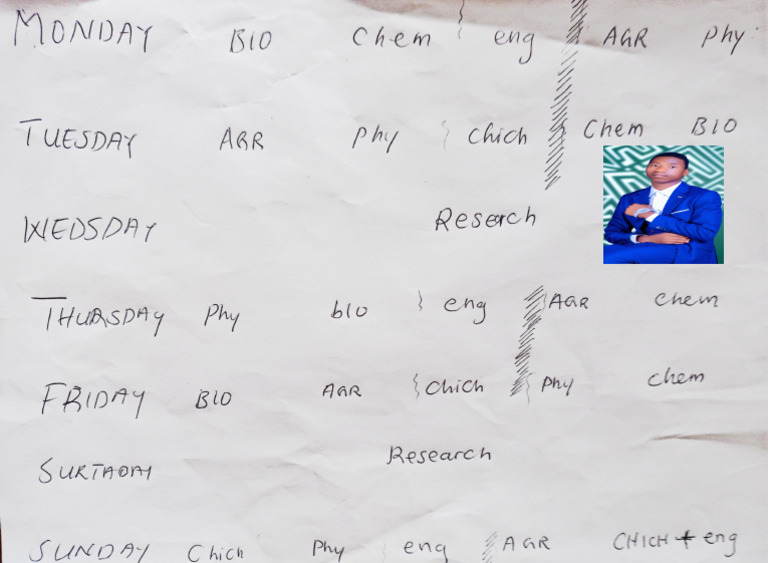 MONDAY BIO Chem eng AGR Phy
TUESDAY AGR Phy Chich Chem BIO
WEDSDAY Reserch
THURSDAY Phy bIO eng AGR chem
FRIDAY BIO AGR Chich Phy chem
SURTADAY Research
SUNDAY Chich Phy eng AGR CHICH + eng